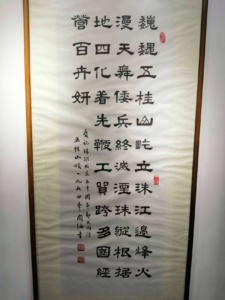 巍巍五桂山屹立珠江邊烽火
漫天舞倭兵終滅湮珠縱根據
地四化着先鞭工貿跨多國經
營百卉妍
五桂山頌一九九四